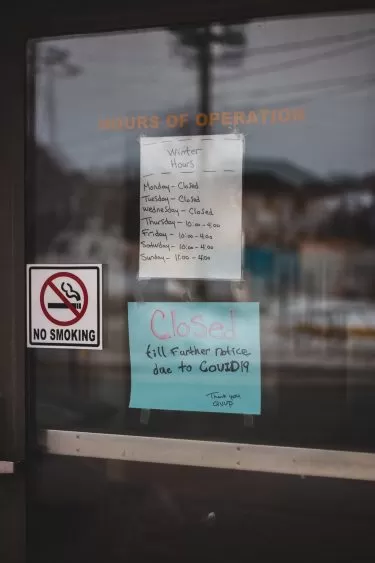 HOURS OF OPERATION
Winter
Hours
Monday - Closed
Tuesday - Closed
Wednesday - Closed
Thursday - 10:00 - 4:00
Friday - 10:00 - 4:00
Saturday - 10:00 - 4:00
Sunday - 11:00 - 4:00
NO SMOKING
Closed
till Further notice
due to COVID19
Thank you